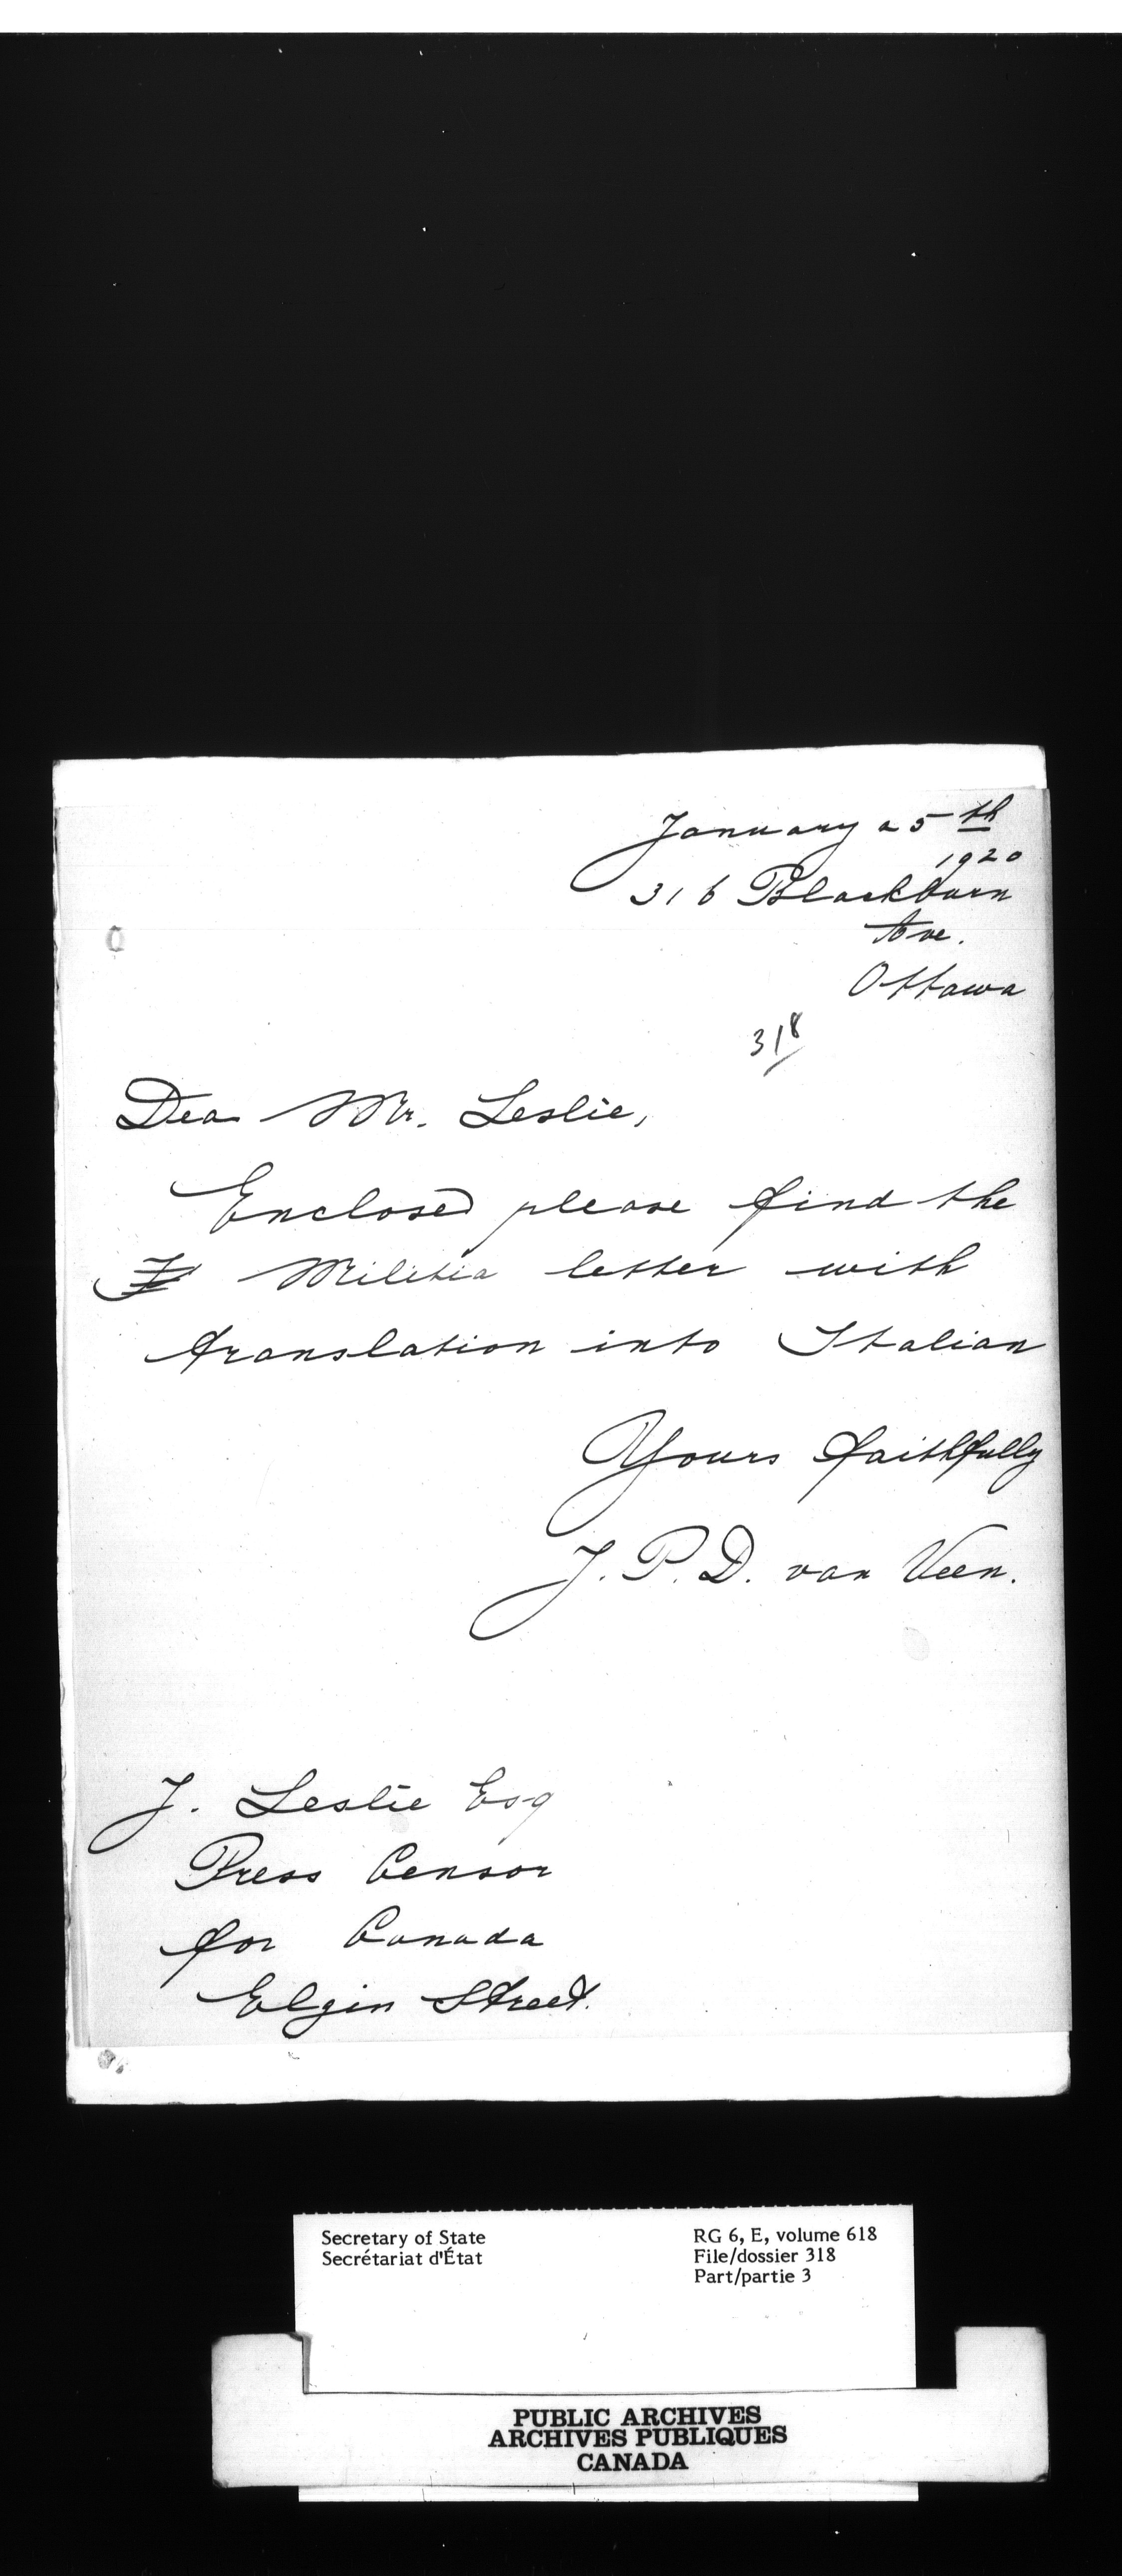 January 25th
1920
316 Blackburn
Ave.
Ottawa
318
Dear Mr. Leslie,
Enclosed please find the
Militia letter with
translation into Italian
Yours faithfully
J. P. D. van Veen.
J. Leslie Esq
Press Censor
for Canada
Elgin Street.
Secretary of State
Secrétariat d'État
RG 6, E, volume 618
File/dossier 318
Part/partie 3
PUBLIC ARCHIVES
ARCHIVES PUBLIQUES
CANADA